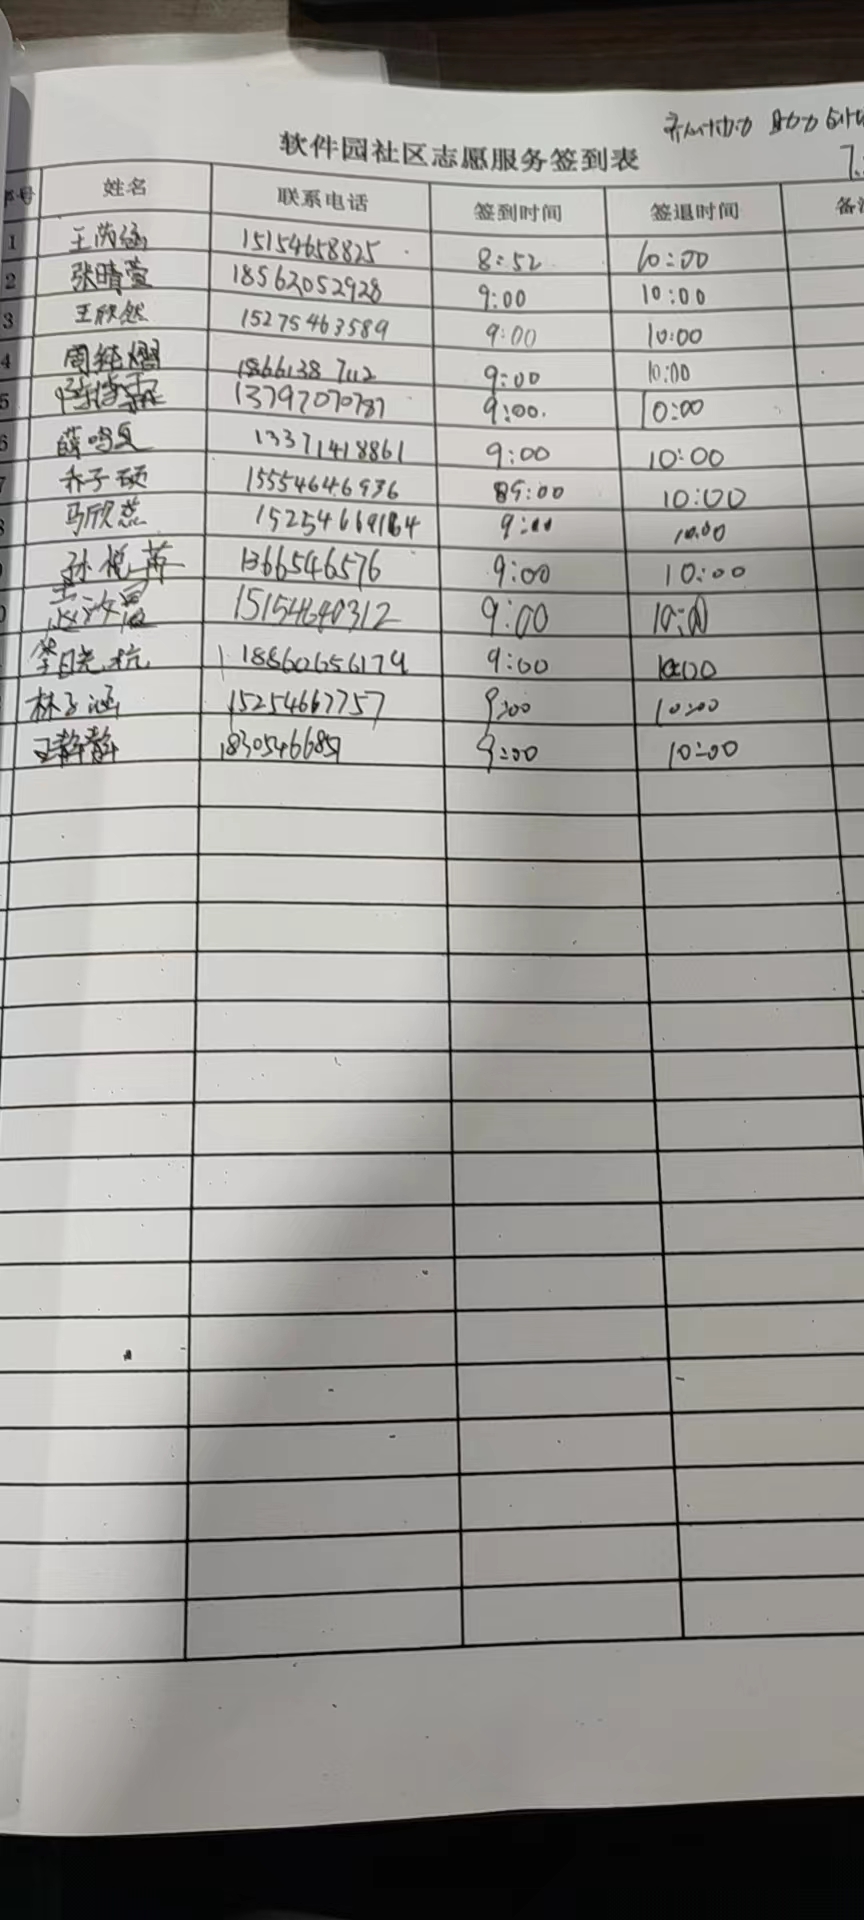 软件园社区志愿服务签到表
7.
序号 姓名 联系电话 签到时间 签退时间 备注
1 王芮涵 15154658825 8:52 10:00
2 张晴萱 18562052928 9:00 10:00
3 王欣然 15275463589 9:00 10:00
4 周纯熠 18661387112 9:00 10:00
5 13797070787 9:00. 10:00
6 薛鸣 13371418861 9:00 10:00
7 乔子硕 15554646936 89:00 10:00
8 马欣蕊 15254669164 9:00 10:00
9 孙悦 1366546576 9:00 10:00
0 15154640312 9:00 10:00
李晓杭 18860656179 9:00 10:00
林子涵 15254667757 9:00 10:00
王静静 1830546685 9:00 10:00